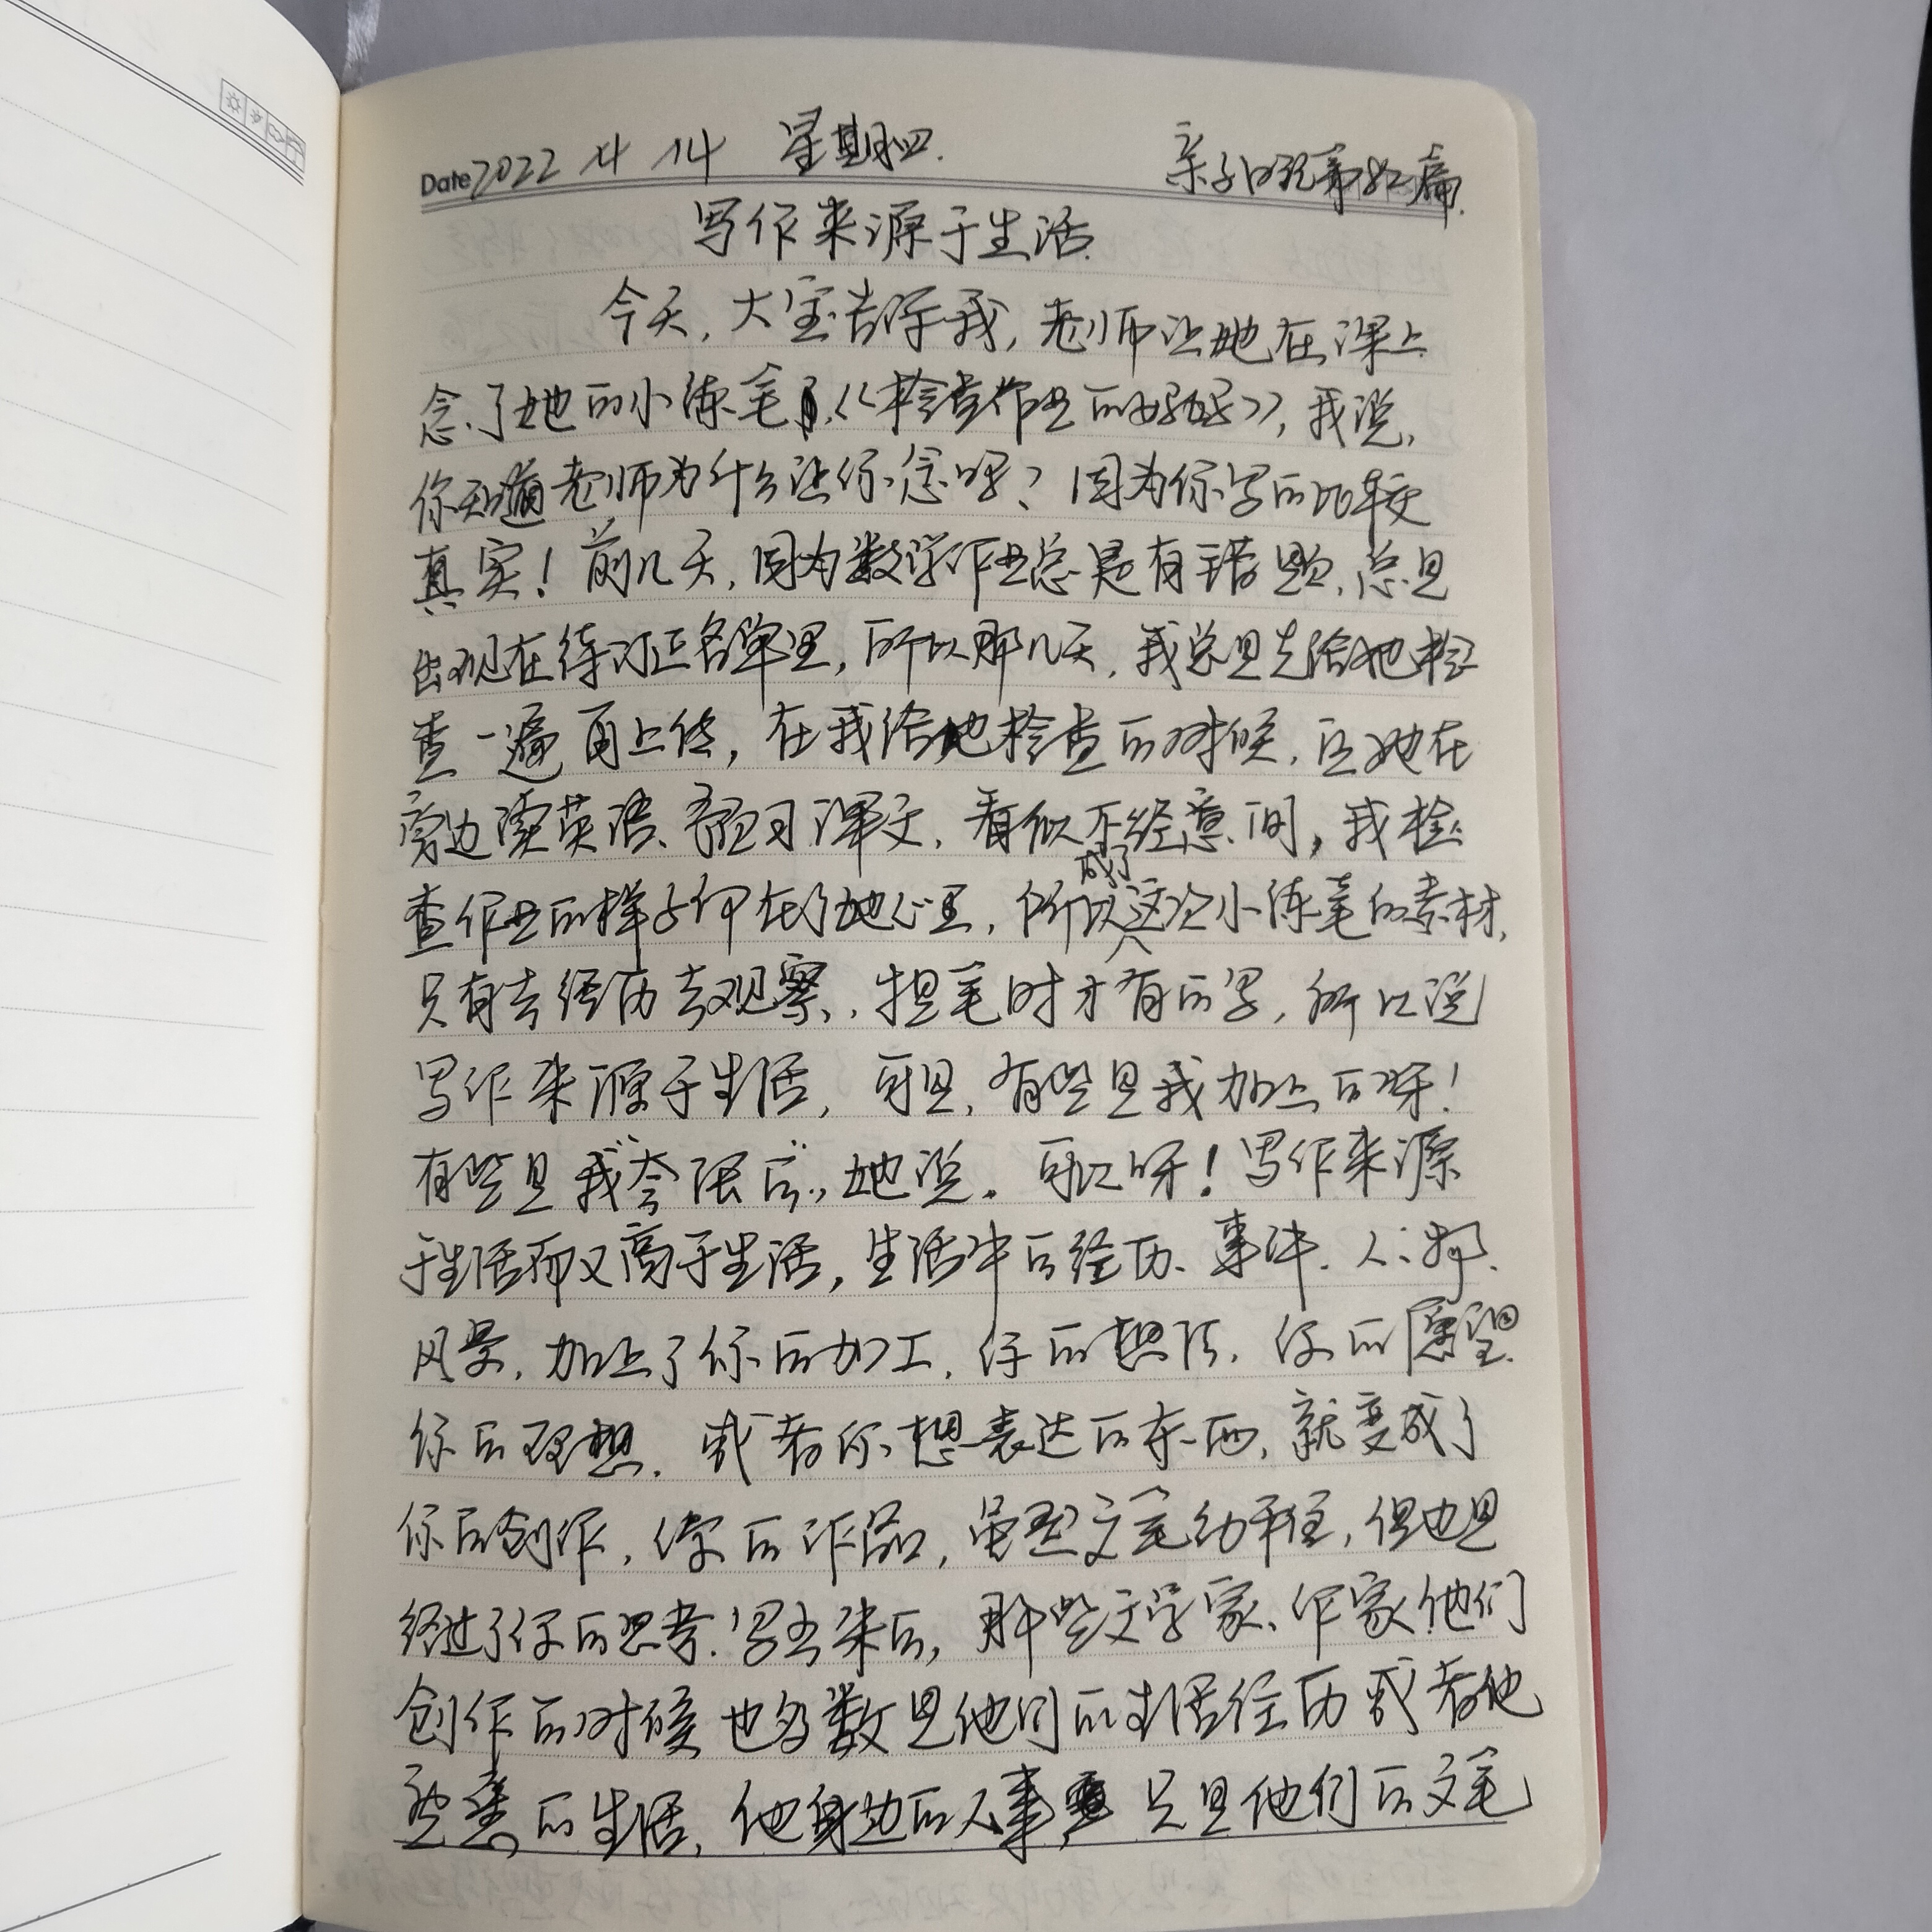 Date 2022 4 14 星期四.
亲子日记第 篇.
写作来源于生活.
今天,大宝告诉我,老师让她在课上
念了她的小练笔《检查作业的妈妈》,我说,
你知道老师为什么让你念呀?因为你写的比较
真实!前几天,因为数学作业总是有错题,总是
出现在待订正名单里,所以那几天,我总是先给她检
查一遍再上传,在我给她检查的时候,让她在
旁边读英语、预习课文,看似不经意间,我检
查作业的样子印在了她心里,所以成了这次小练笔的素材,
只有去经历去观察,提笔时才有的写,所以说
写作来源于生活,可是,有些是我加上的呀!
有些是我夸张的,她说。可以呀!写作来源
于生活而又高于生活,生活中的经历、事件、人物、
风景,加上了你的加工,你的想法,你的愿望
你的理想,或者你想表达的东西,就变成了
你的创作,你的作品,虽然文笔幼稚,但也是
经过了你的思考.写出来的,那些文学家、作家他们
创作的时候也多数是他们的生活经历或者他
熟悉的生活,他身边的人事,只是他们的文笔